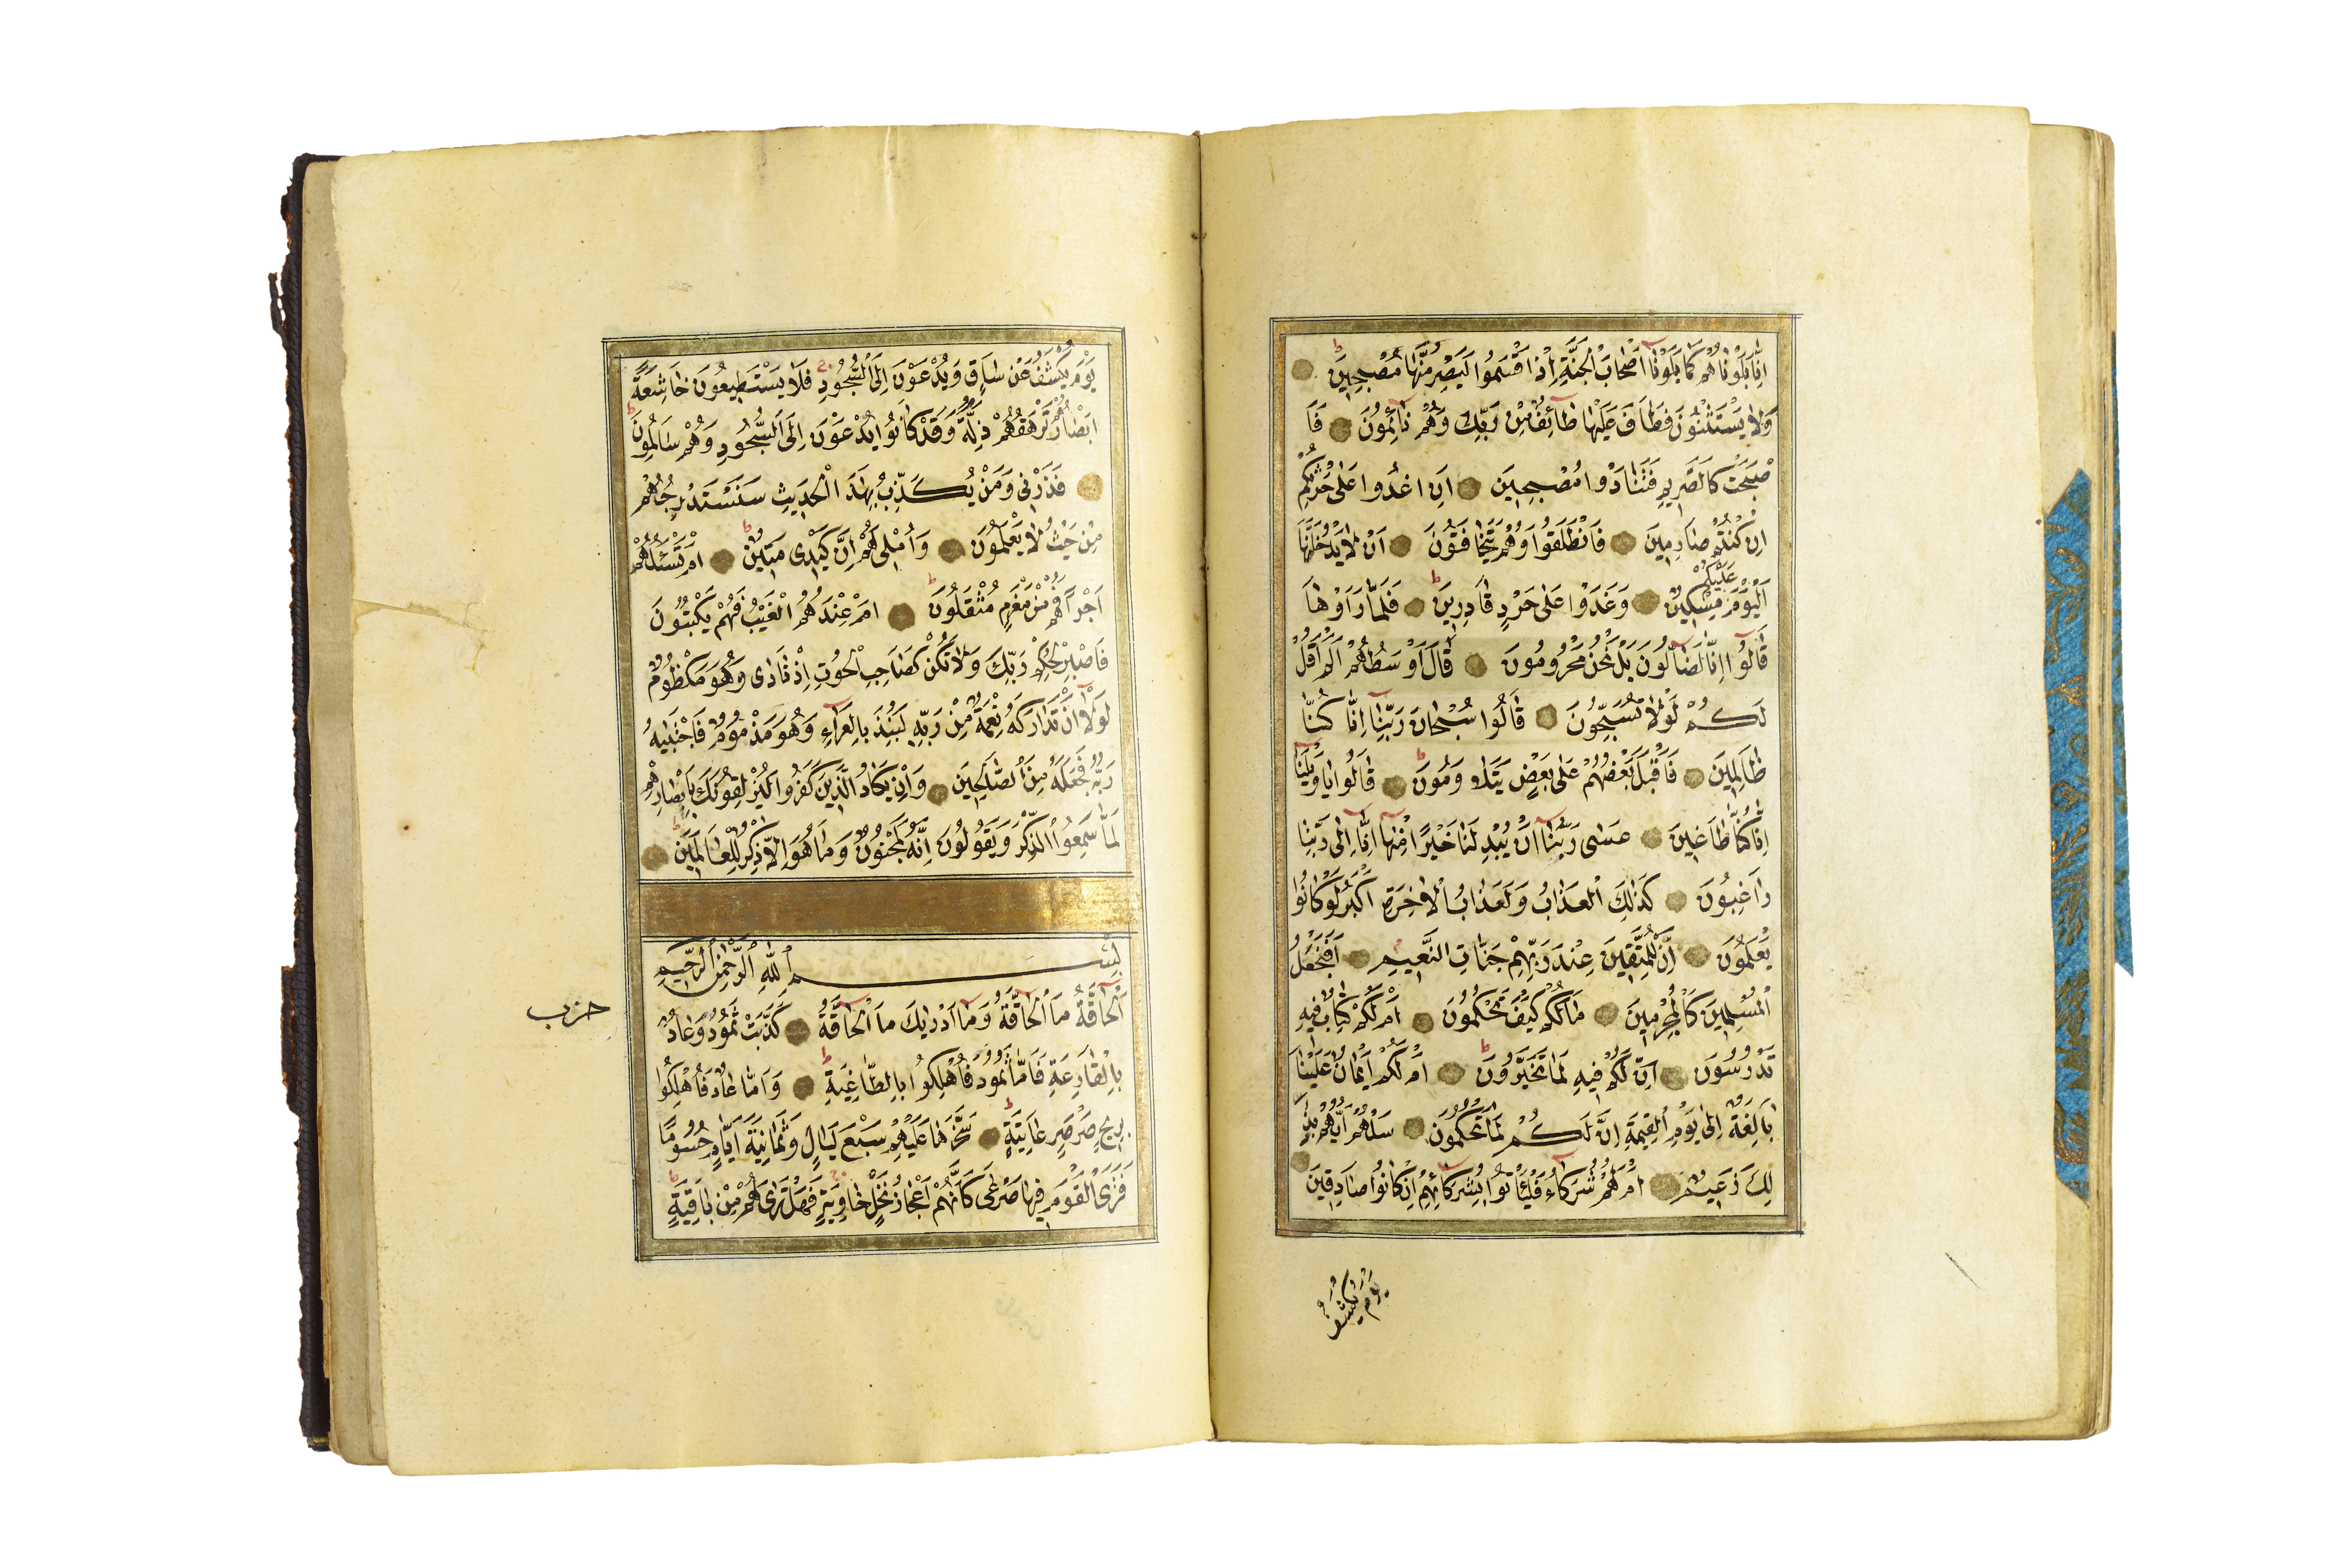 اِنَّا بَلَوْنَاهُمْ كَمَا بَلَوْنَا اَصْحَابَ الْجَنَّةِ اِذْ اَقْسَمُوا لَيَصْرِمُنَّهَا مُصْبِحِينَ
وَلَا يَسْتَثْنُونَ فَطَافَ عَلَيْهَا طَائِفٌ مِنْ رَبِّكَ وَهُمْ نَائِمُونَ فَاَ
صْبَحَتْ كَالصَّرِيمِ فَتَنَادَوْا مُصْبِحِينَ اَنِ اغْدُوا عَلَى حَرْثِكُمْ
اِنْ كُنْتُمْ صَارِمِينَ فَانْطَلَقُوا وَهُمْ يَتَخَافَتُونَ اَنْ لَا يَدْخُلَنَّهَا
الْيَوْمَ عَلَيْكُمْ مِسْكِينٌ وَغَدَوْا عَلَى حَرْدٍ قَادِرِينَ فَلَمَّا رَاَوْهَا
قَالُوا اِنَّا لَضَالُّونَ بَلْ نَحْنُ مَحْرُومُونَ قَالَ اَوْسَطُهُمْ اَلَمْ اَقُلْ
لَكُمْ لَوْلَا تُسَبِّحُونَ قَالُوا سُبْحَانَ رَبِّنَا اِنَّا كُنَّا
ظَالِمِينَ فَاَقْبَلَ بَعْضُهُمْ عَلَى بَعْضٍ يَتَلَاوَمُونَ قَالُوا يَا وَيْلَنَا
اِنَّا كُنَّا طَاغِينَ عَسَى رَبُّنَا اَنْ يُبْدِلَنَا خَيْرًا مِنْهَا اِنَّا اِلَى رَبِّنَا
رَاغِبُونَ كَذَلِكَ الْعَذَابُ وَلَعَذَابُ الْاٰخِرَةِ اَكْبَرُ لَوْ كَانُوا
يَعْلَمُونَ اِنَّ لِلْمُتَّقِينَ عِنْدَ رَبِّهِمْ جَنَّاتِ النَّعِيمِ اَفَنَجْعَلُ
الْمُسْلِمِينَ كَالْمُجْرِمِينَ مَا لَكُمْ كَيْفَ تَحْكُمُونَ اَمْ لَكُمْ كِتَابٌ فِيهِ
تَدْرُسُونَ اِنَّ لَكُمْ فِيهِ لَمَا تَخَيَّرُونَ اَمْ لَكُمْ اَيْمَانٌ عَلَيْنَا
بَالِغَةٌ اِلَى يَوْمِ الْقِيٰمَةِ اِنَّ لَكُمْ لَمَا تَحْكُمُونَ سَلْهُمْ اَيُّهُمْ بِذَ
لِكَ زَعِيمٌ اَمْ لَهُمْ شُرَكَاءُ فَلْيَأْتُوا بِشُرَكَائِهِمْ اِنْ كَانُوا صَادِقِينَ
يَوْمَ يُكْشَفُ
يَوْمَ يُكْشَفُ عَنْ سَاقٍ وَيُدْعَوْنَ اِلَى السُّجُودِ فَلَا يَسْتَطِيعُونَ خَاشِعَةً
اَبْصَارُهُمْ تَرْهَقُهُمْ ذِلَّةٌ وَقَدْ كَانُوا يُدْعَوْنَ اِلَى السُّجُودِ وَهُمْ سَالِمُونَ
فَذَرْنِى وَمَنْ يُكَذِّبُ بِهٰذَا الْحَدِيثِ سَنَسْتَدْرِجُهُمْ
مِنْ حَيْثُ لَا يَعْلَمُونَ وَاُمْلِى لَهُمْ اِنَّ كَيْدِى مَتِينٌ اَمْ تَسْئَلُهُمْ
اَجْرًا فَهُمْ مِنْ مَغْرَمٍ مُثْقَلُونَ اَمْ عِنْدَهُمُ الْغَيْبُ فَهُمْ يَكْتُبُونَ
فَاصْبِرْ لِحُكْمِ رَبِّكَ وَلَا تَكُنْ كَصَاحِبِ الْحُوتِ اِذْ نَادَى وَهُوَ مَكْظُومٌ
لَوْلَا اَنْ تَدَارَكَهُ نِعْمَةٌ مِنْ رَبِّهِ لَنُبِذَ بِالْعَرَاءِ وَهُوَ مَذْمُومٌ فَاجْتَبٰيهُ
رَبُّهُ فَجَعَلَهُ مِنَ الصَّالِحِينَ وَاِنْ يَكَادُ الَّذِينَ كَفَرُوا لَيُزْلِقُونَكَ بِاَبْصَارِهِمْ
لَمَّا سَمِعُوا الذِّكْرَ وَيَقُولُونَ اِنَّهُ لَمَجْنُونٌ وَمَا هُوَ اِلَّا ذِكْرٌ لِلْعَالَمِينَ
بِسْمِ اللّٰهِ الرَّحْمٰنِ الرَّحِيمِ
اَلْحَاقَّةُ مَا الْحَاقَّةُ وَمَا اَدْرٰيكَ مَا الْحَاقَّةُ كَذَّبَتْ ثَمُودُ وَعَادٌ
حزب
بِالْقَارِعَةِ فَاَمَّا ثَمُودُ فَاُهْلِكُوا بِالطَّاغِيَةِ وَاَمَّا عَادٌ فَاُهْلِكُوا
بِرِيحٍ صَرْصَرٍ عَاتِيَةٍ سَخَّرَهَا عَلَيْهِمْ سَبْعَ لَيَالٍ وَثَمَانِيَةَ اَيَّامٍ حُسُومًا
فَتَرَى الْقَوْمَ فِيهَا صَرْعَى كَاَنَّهُمْ اَعْجَازُ نَخْلٍ خَاوِيَةٍ فَهَلْ تَرَى لَهُمْ مِنْ بَاقِيَةٍ